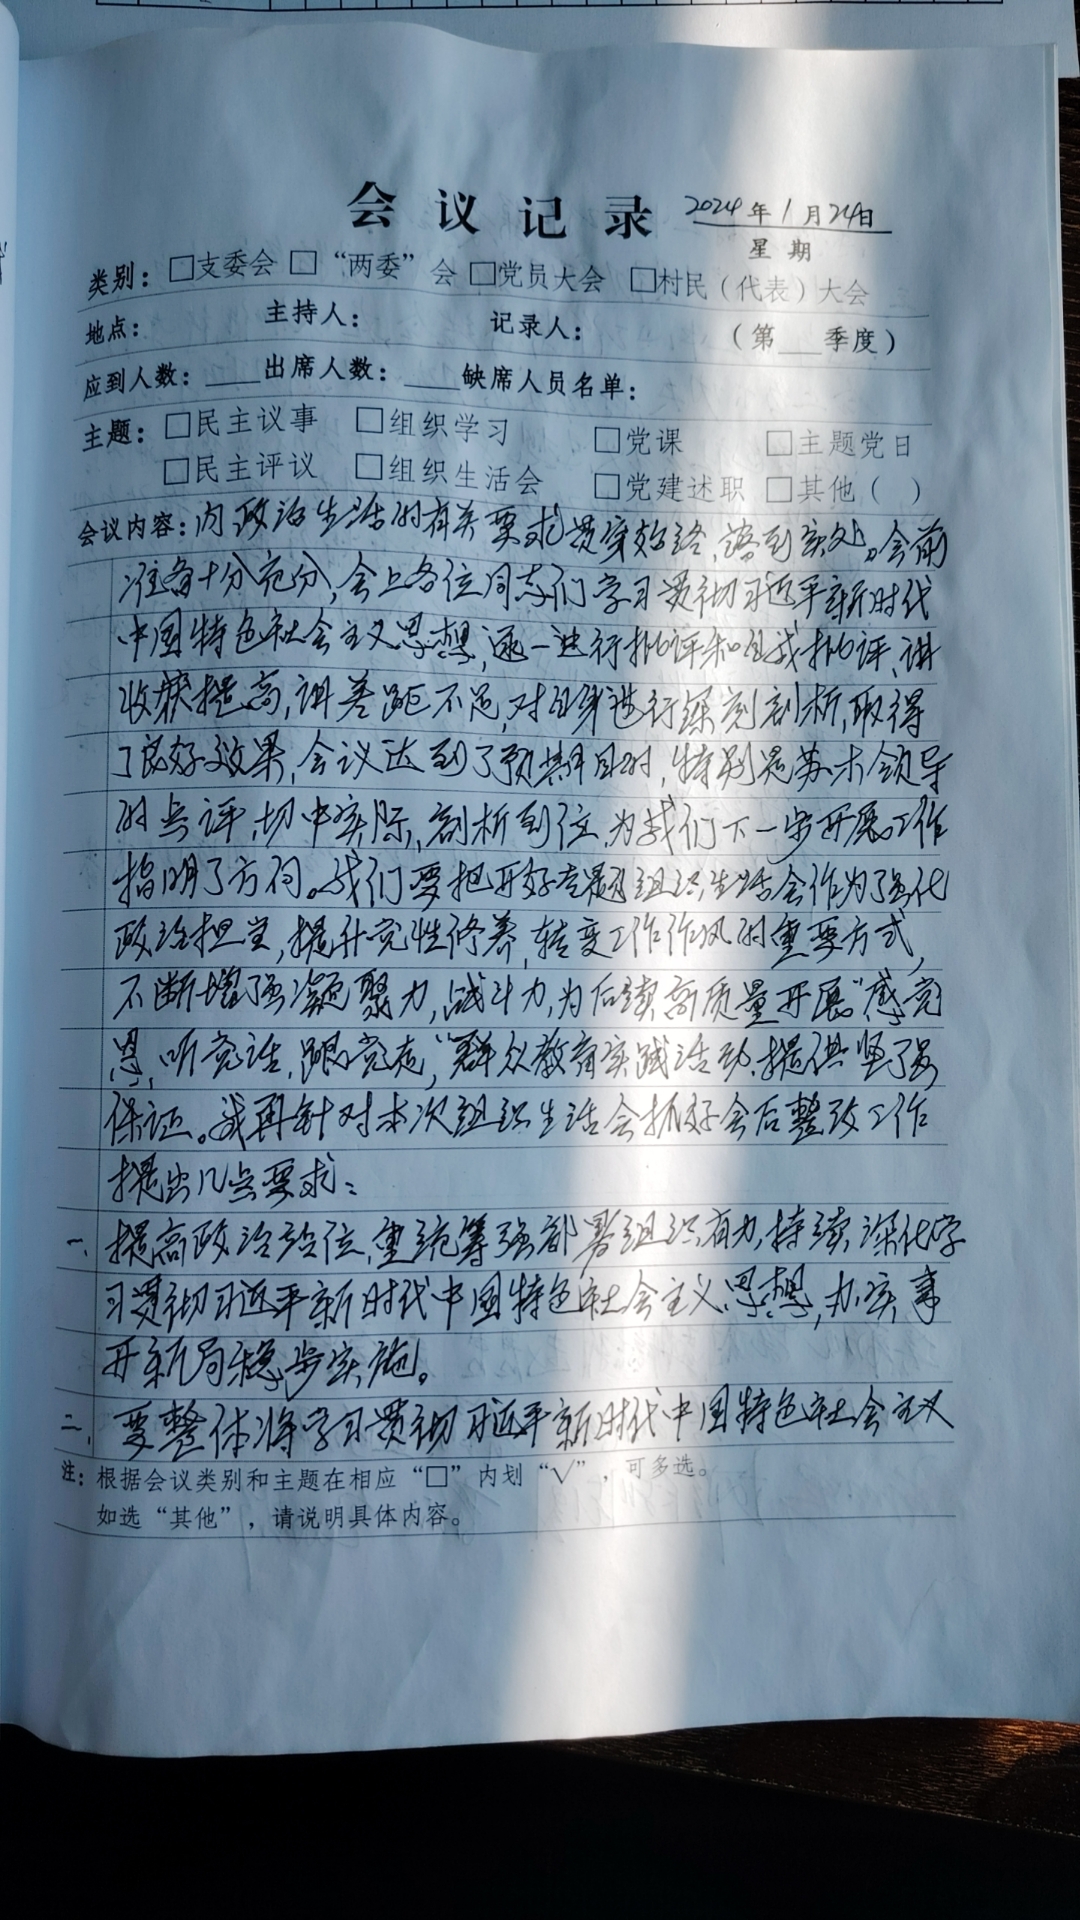 会议记录 2024年1月24日
星期
类别：□支委会 □“两委”会 □党员大会 □村民（代表）大会
地点： 主持人： 记录人： （第___季度）
应到人数：____出席人数：____缺席人员名单：
主题：□民主议事 □组织学习 □党课 □主题党日
□民主评议 □组织生活会 □党建述职 □其他（ ）
会议内容：内政治生活的有关要求贯穿始终，落到实处。会前
准备十分充分，会上各位同志们学习贯彻习近平新时代
中国特色社会主义思想，逐一进行批评和自我批评，讲
收获提高，讲差距不足，对自身进行深刻剖析，取得
了良好效果，会议达到了预期目的，特别是苏木领导
的点评，切中实际，剖析到位，为我们下一步开展工作
指明了方向。我们要把开好专题组织生活会作为了强化
政治担当，提升党性修养，转变工作作风的重要方式，
不断增强凝聚力，战斗力，为后续高质量开展“感党
恩，听党话，跟党走”，群众教育实践活动，提供坚强
保证。我再针对本次组织生活会抓好会后整改工作
提出几点要求：
一、提高政治站位，重统筹强部署组织有力，持续深化学
习贯彻习近平新时代中国特色社会主义思想，办实事
开新局稳步实施。
二、要整体将学习贯彻习近平新时代中国特色社会主义
注：根据会议类别和主题在相应“□”内划“√”，可多选。
如选“其他”，请说明具体内容。